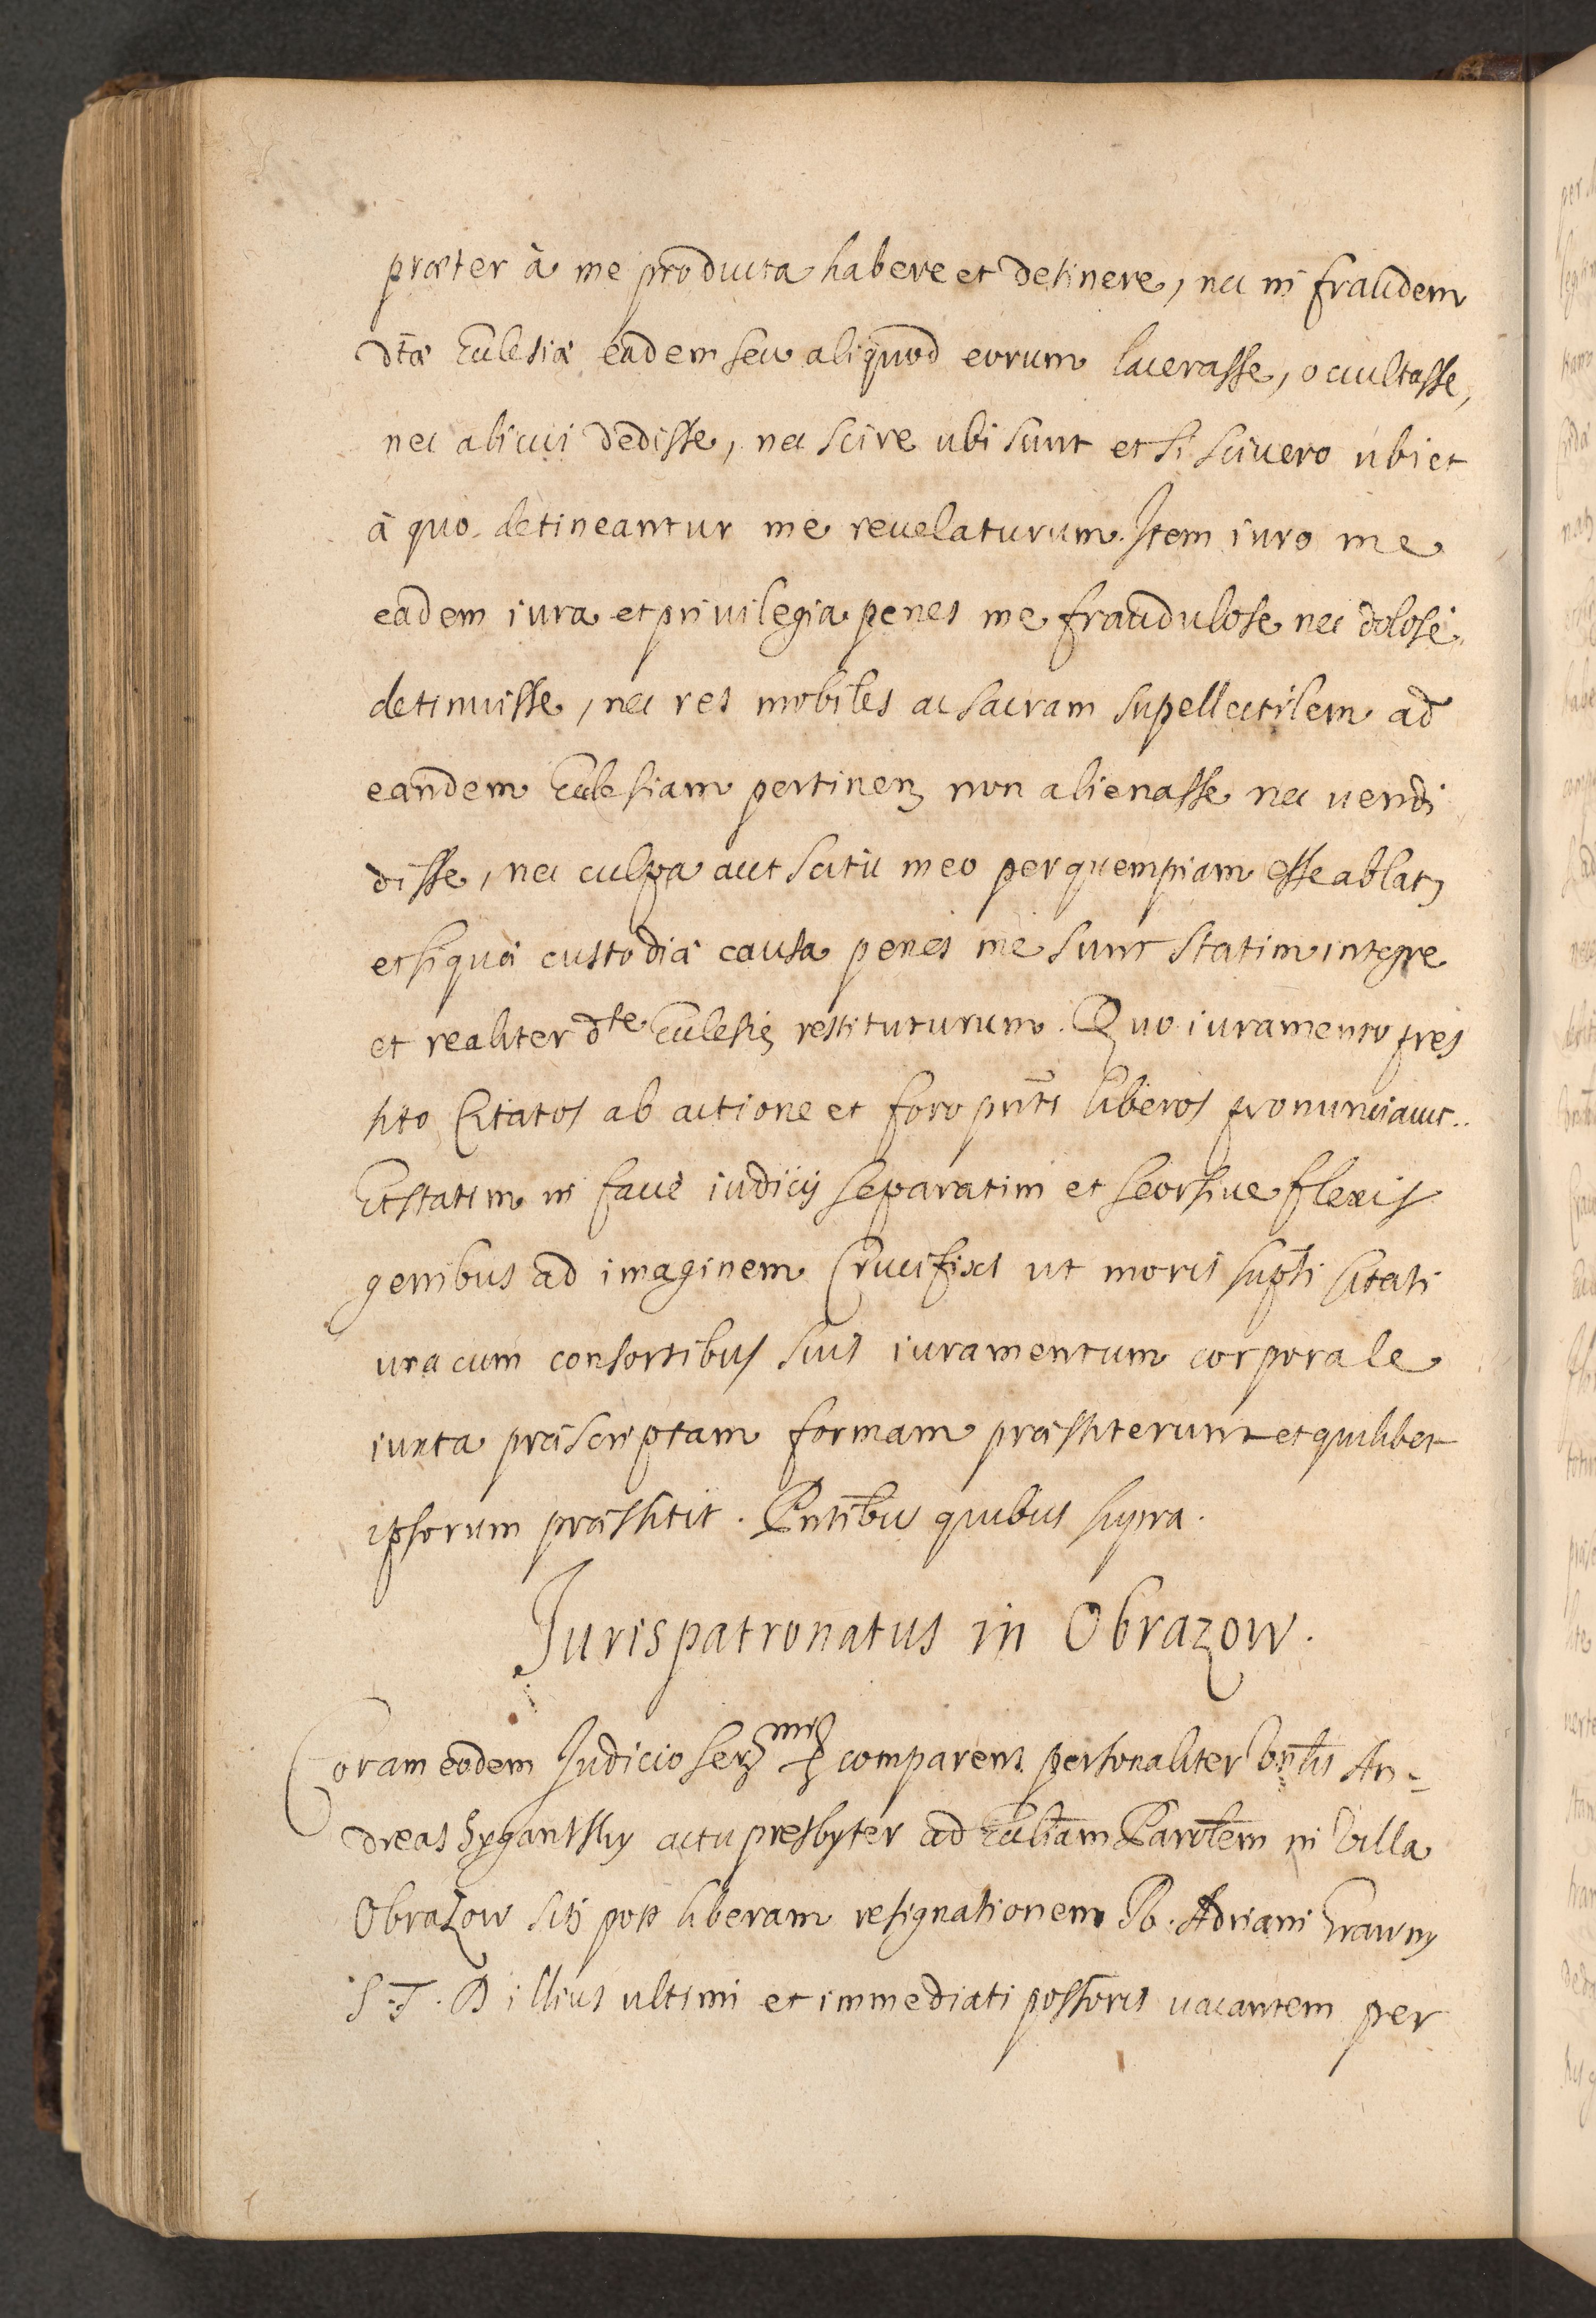 præter à me producta habere et detinere, nec in fraudem
dtæ Ecclesiæ eadem seu aliquod eorum lacerasse, occultasse,
nec alicui dedisse, nec scire ubi sunt et si scivero ubi et
à quo detineantur me revelaturum. Item iuro me
eadem iura et privilegia penes me fraudulose nec dolose
detinuisse, nec res mobiles ac sacram supellectilem ad
eandem Ecclesiam pertinen non alienasse nec vendi
disse, nec culpa aut scitu meo per quempiam esse ablat
et si quæ custodiæ causa penes me sunt statim integre
et realiter dte Ecclesię restituturum. Quo iuramento pres
tito Citatos ab actione et foro pnti liberos pronunciavit.
Et statim in facie iudicij separatim et seorsive flexis
genibus ad imaginem Crucifixi ut moris supti citati
una cum consortibus suis iuramentum corporale
iuxta præscriptam formam præstiterunt et quilibet
ipsorum præstitit. Pntibus quibus supra.
Iurispatronatus in Obrazow.
Coram eodem Judicio comparens personaliter An-
dreas actu presbyter ad Eccliam Parolem in Villa
Obrazow post liberam resignationem Adriani
S. T. D illius ultimi et immediati possoris vacantem per